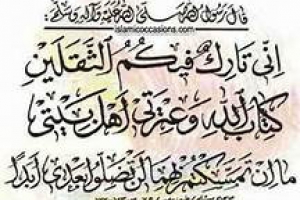 قال رسول الله صلى الله علیه وآله وسلم:
islamicoccasions.com
إني تارك فيكم الثقلين
كتاب الله وعترتي أهل بيتي
ما إن تمسكتم بهما لن تضلوا بعدي أبدًا